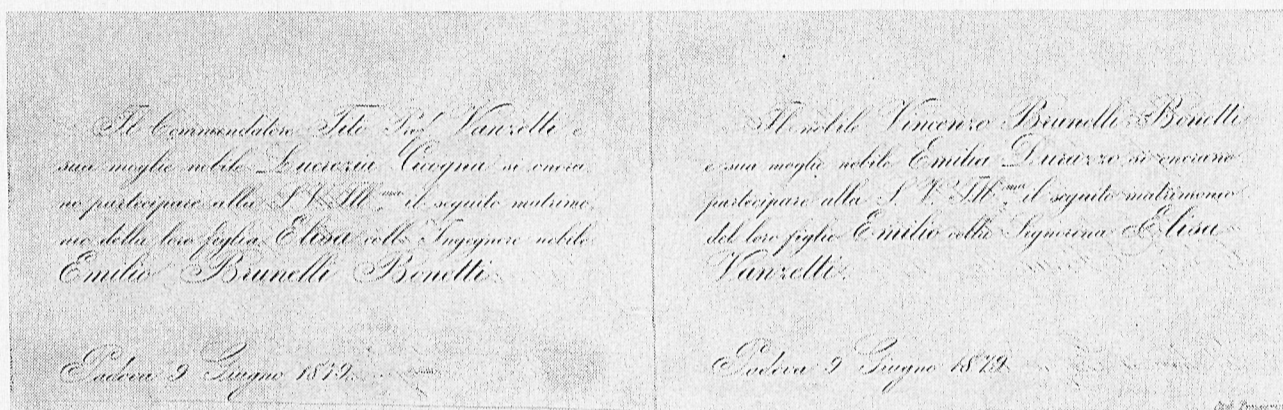 Il Commendatore Tito Prof. Vanzetti e
sua moglie nobile Lucrezia Cicogna si onora
no partecipare alla S. V. Ill.ma il seguito matrimo
nio della loro figlia Elisa coll' Ingegnere nobile
Emilio Brunelli Bonetti
Padova 9 Giugno 1879
Il nobile Vincenzo Brunelli Bonetti
e sua moglie nobile Emilia Durazzo si onorano
partecipare alla S. V. Ill.ma il seguito matrimonio
del loro figlio Emilio colla Signorina Elisa
Vanzetti.
Padova 9 Giugno 1879